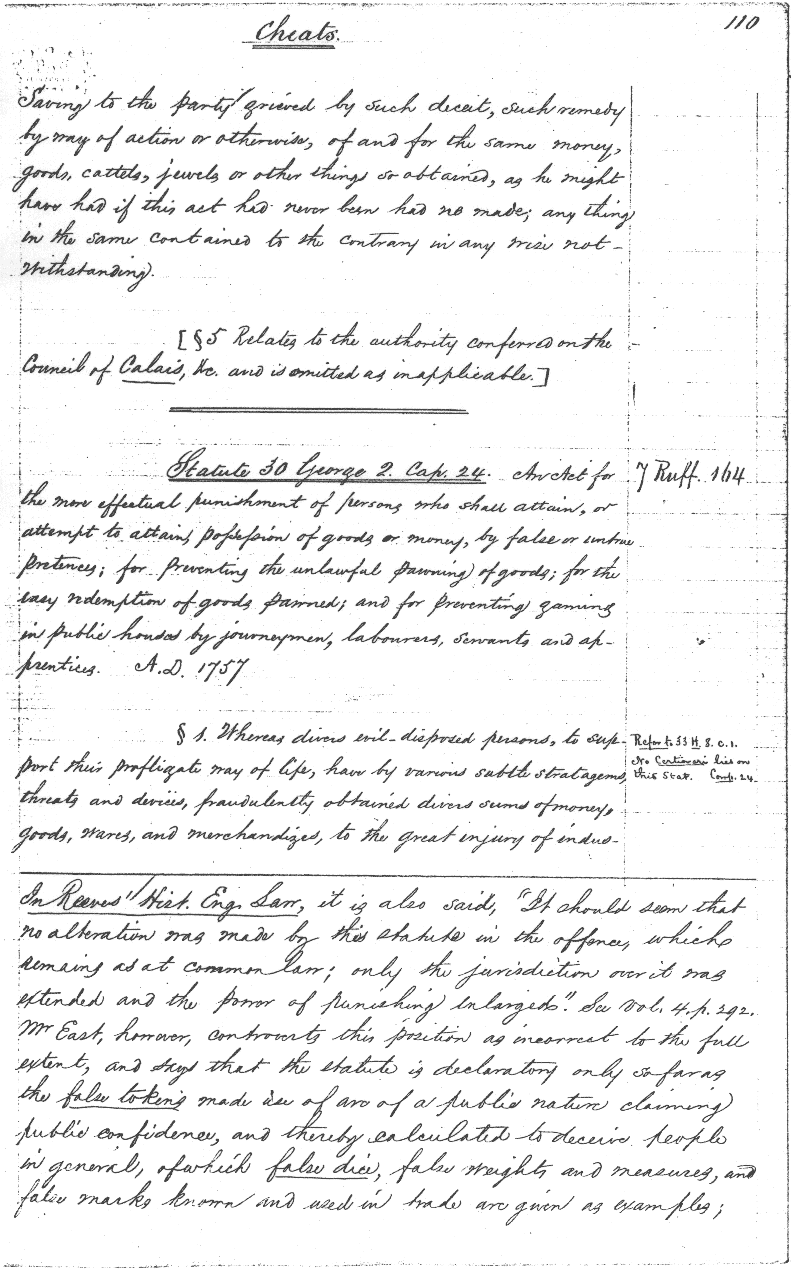 110
Cheats.
Saving to the party grieved by such deceit, such remedy
by way of action or otherwise, of and for the same money,
goods, cattels, jewels or other things so obtained, as he might
have had if this act had never been had no made; any thing
in the same contained to the contrary in any wise not-
withstanding.
[§5 Relates to the authority conferred on the
Council of Calais, &c. and is omitted as inapplicable.]
Statute 30 George 2. Cap. 24. An Act for
7 Ruff. 164
the more effectual punishment of persons who shall attain, or
attempt to attain, possession of goods or money, by false or untrue
pretences; for preventing the unlawful pawning of goods; for the
easy redemption of goods pawned; and for preventing gaming
in public houses by journeymen, labourers, servants and ap-
prentices. A.D. 1757
§ 1. Whereas divers evil-disposed persons, to sup-
port their profligate way of life, have by various subtle stratagems,
threats and devices, fraudulently obtained divers sums of money,
goods, wares, and merchandizes, to the great injury of indus-
Refer to 33 H. 8. c. 1.
No Certiorari lies on
this Stat. Comp. 24.
In Reeves' Hist. Eng. Law, it is also said, "It should seem that
no alteration was made by this statute in the offence, which
remains as at common law; only the jurisdiction over it was
extended and the power of punishing enlarged". See vol. 4. p. 292.
Mr East, however, controverts this position as incorrect to the full
extent, and says that the statute is declaratory only so far as
the false tokens made use of are of a public nature claiming
public confidence, and thereby calculated to deceive people
in general, of which false dice, false weights and measures, and
false marks known and used in trade are given as examples;